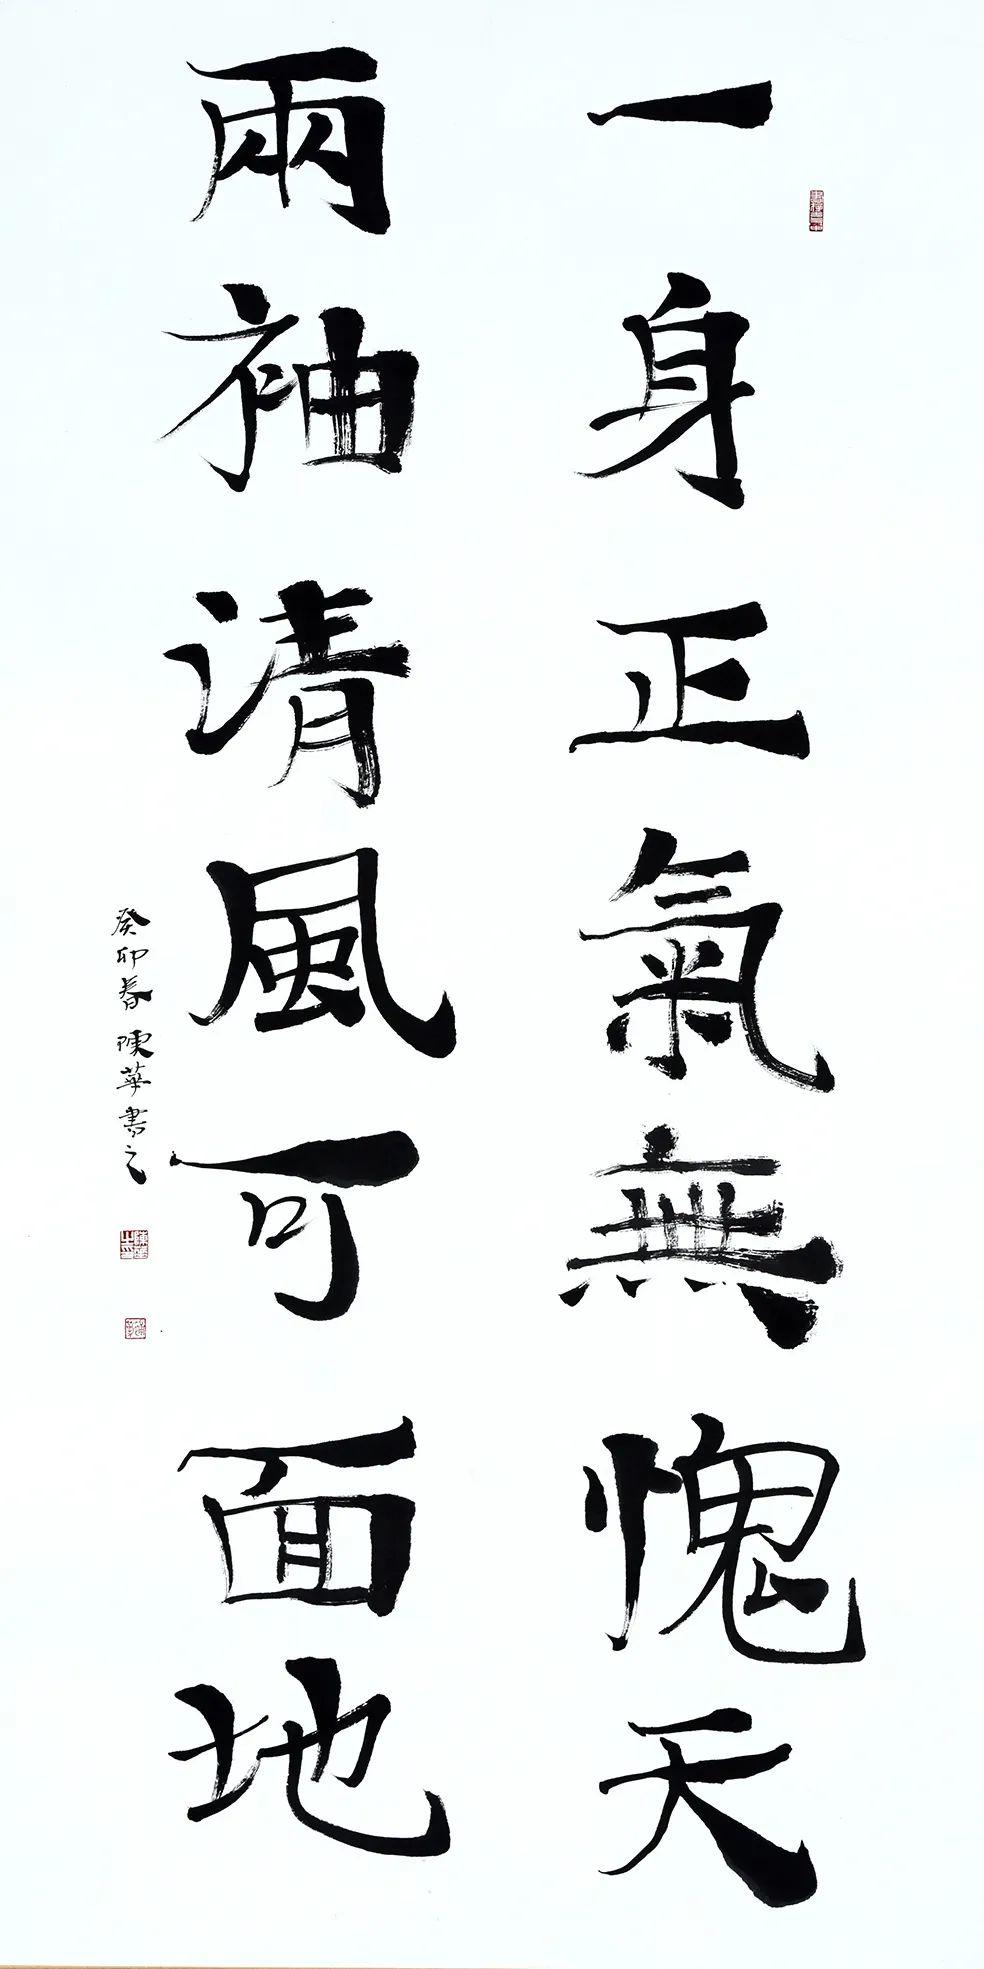 一身正氣無愧天
兩袖清風可面地
癸卯春陳華書之